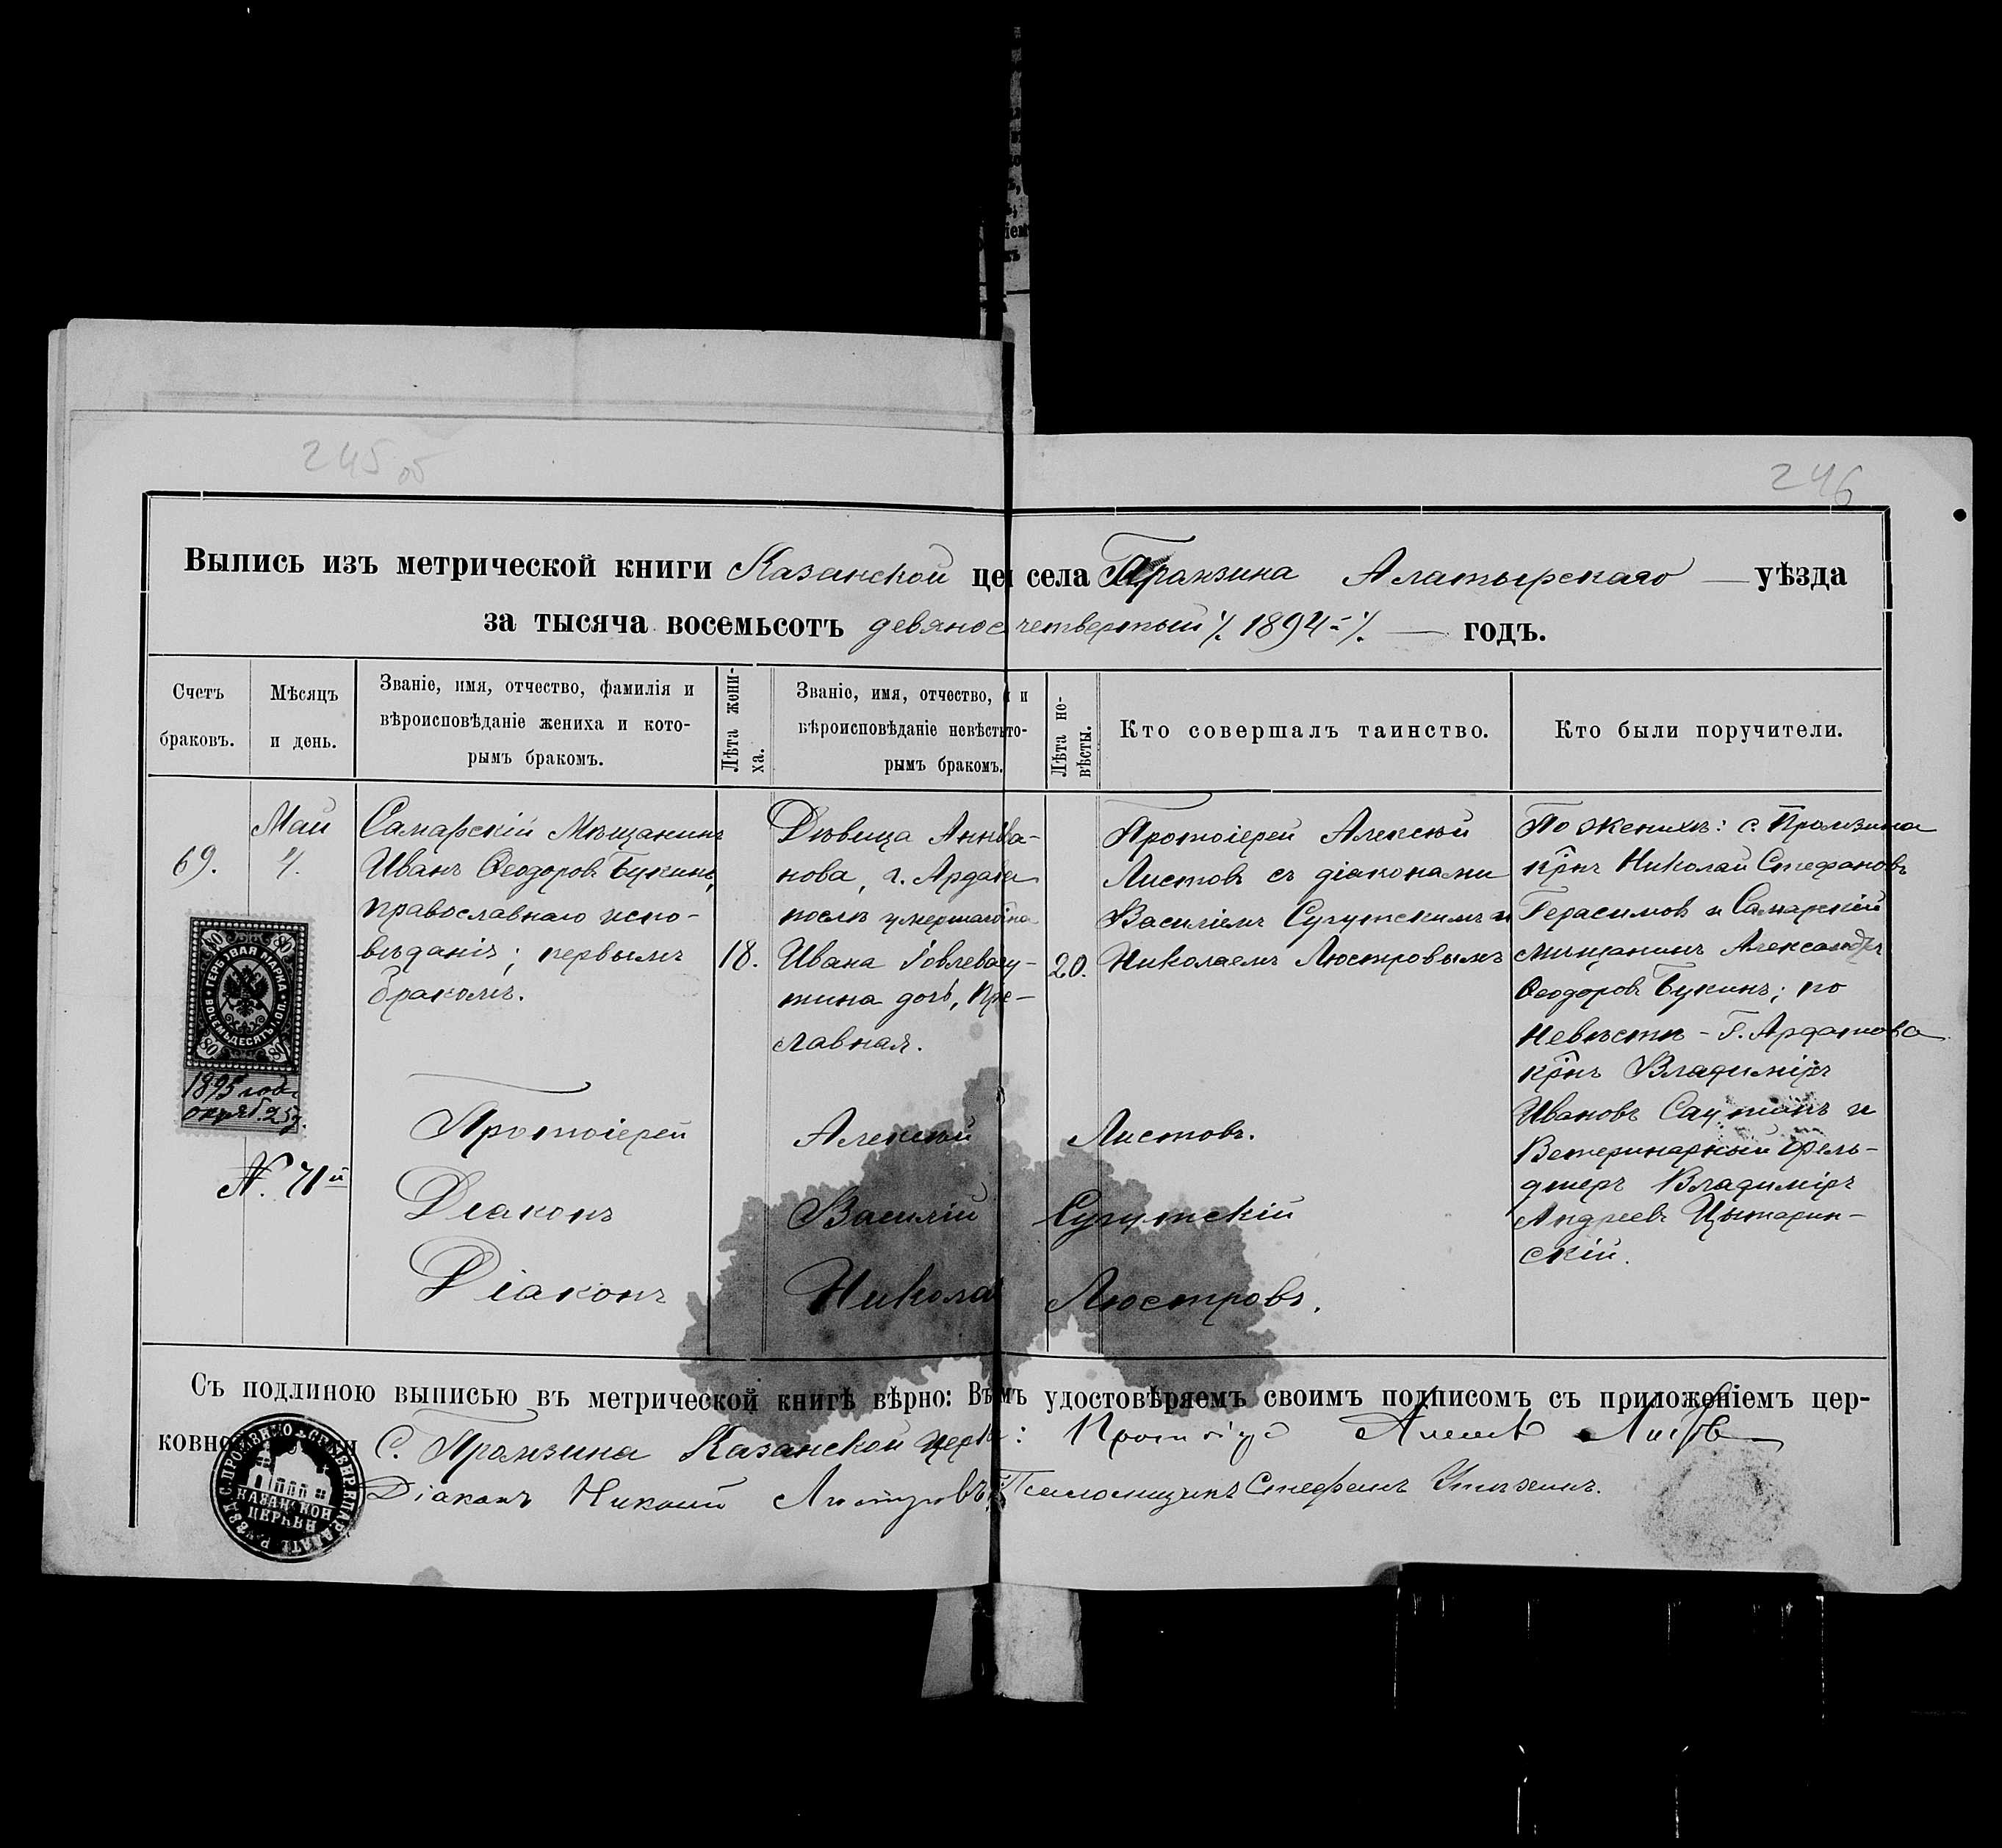 245 об
246
Выпись изъ метрической книги Казанской це села Промзина Алатырскаго — уѣзда
за тысяча восемьсотъ девянос четвертый ·/. 1894 ·/. — годъ.
Счетъ браковъ.
Мѣсяцъ и день.
Званіе, имя, отчество, фамилія и
вѣроисповѣданіе жениха и кото-
рымъ бракомъ.
Лѣта жени-
ха.
Званіе, имя, отчество, и
вѣроисповѣданіе невѣст то-
рымъ бракомъ.
Лѣта не-
вѣсты.
Кто совершалъ таинство.
Кто были поручители.
69.
Май
4.
Самарскій Мѣщанинъ
Иванъ Ѳеодоровъ Букинъ,
православнаго испо-
вѣданія; первымъ
бракомъ.
18.
Дѣвица Анн ва-
нова, г. Ардато
послѣ умершаго
Ивана
тина дочь, Пра-
славная.
20.
Протоіерей Алексѣй
Листовъ съ діаконами
Василіемъ Сугутскимъ и
Николаемъ Люстровымъ
По женихѣ: с. Промзина
крнъ Николай Стефановъ
Герасимовъ и Самарскій
мѣщанинъ Александръ
Ѳеодоровъ Букинъ; по
Невѣстѣ - г. Ардатова
крнъ Владиміръ
Ивановъ и
Ветеринарный Фель-
дшеръ Владиміръ
Андреевъ Цытарин-
скій.
ГЕРБОВАЯ МАРКА
ВОСЕМЬДЕСЯТЪ КОП.
80 80
80 80
1895 года
октяб. 25 д.
N. 71й
Протоіерей Алексѣй Листовъ.
Діаконъ Василій Сугутскій
Діаконъ Никола Люстровъ.
Съ подлиною выписью въ метрической книгѣ вѣрно: Въ мъ удостовѣряемъ своимъ подписомъ съ приложеніемъ цер-
ковно и С. Промзина Казанской церк : Протоіерей Алексѣй Листовъ
Діаконъ Николай Люстровъ, Псаломщикъ Стефанъ
КАЗАНСКОЙ
ЦЕРКВИ